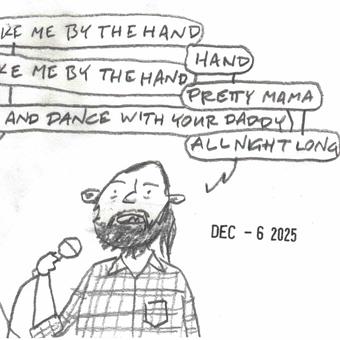 KE ME BY THE HAND
HAND
KE ME BY THE HAND
PRETTY MAMA
AND DANCE WITH YOUR DADDY
ALL NIGHT LONG
DEC -6 2025